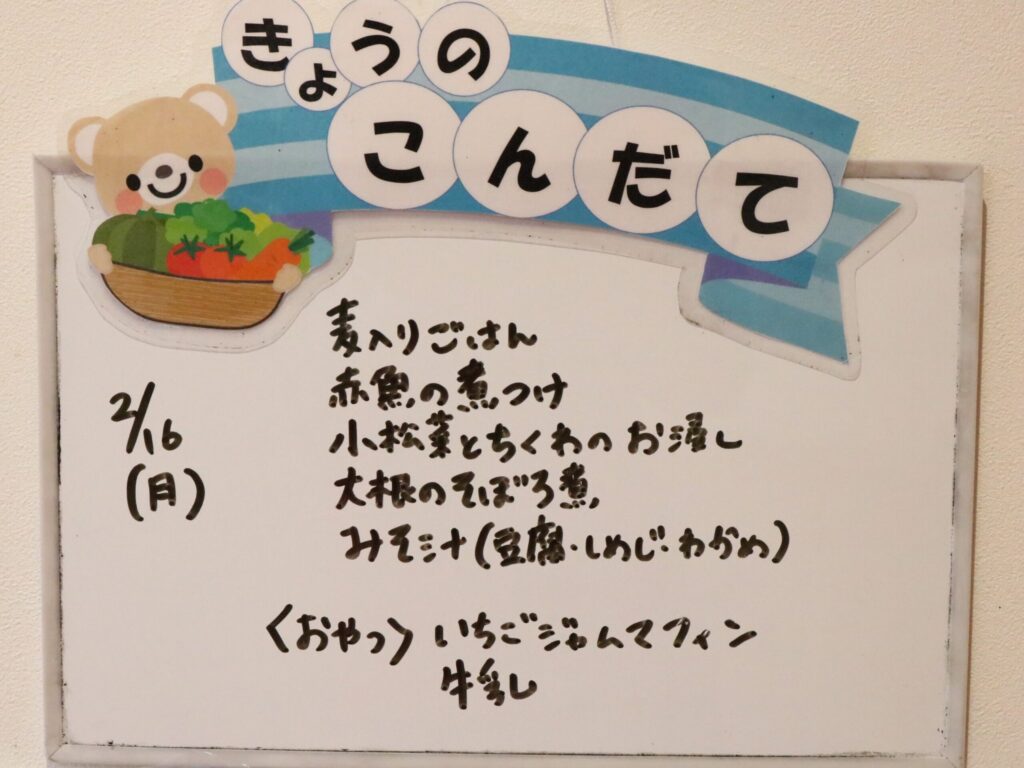 きょうの
こんだて
2/16
(月)
麦入りごはん
赤魚の煮つけ
小松菜とちくわのお浸し
大根のそぼろ煮
みそ汁(豆腐・しめじ・わかめ)
〈おやつ〉いちごジャムマフィン
牛乳